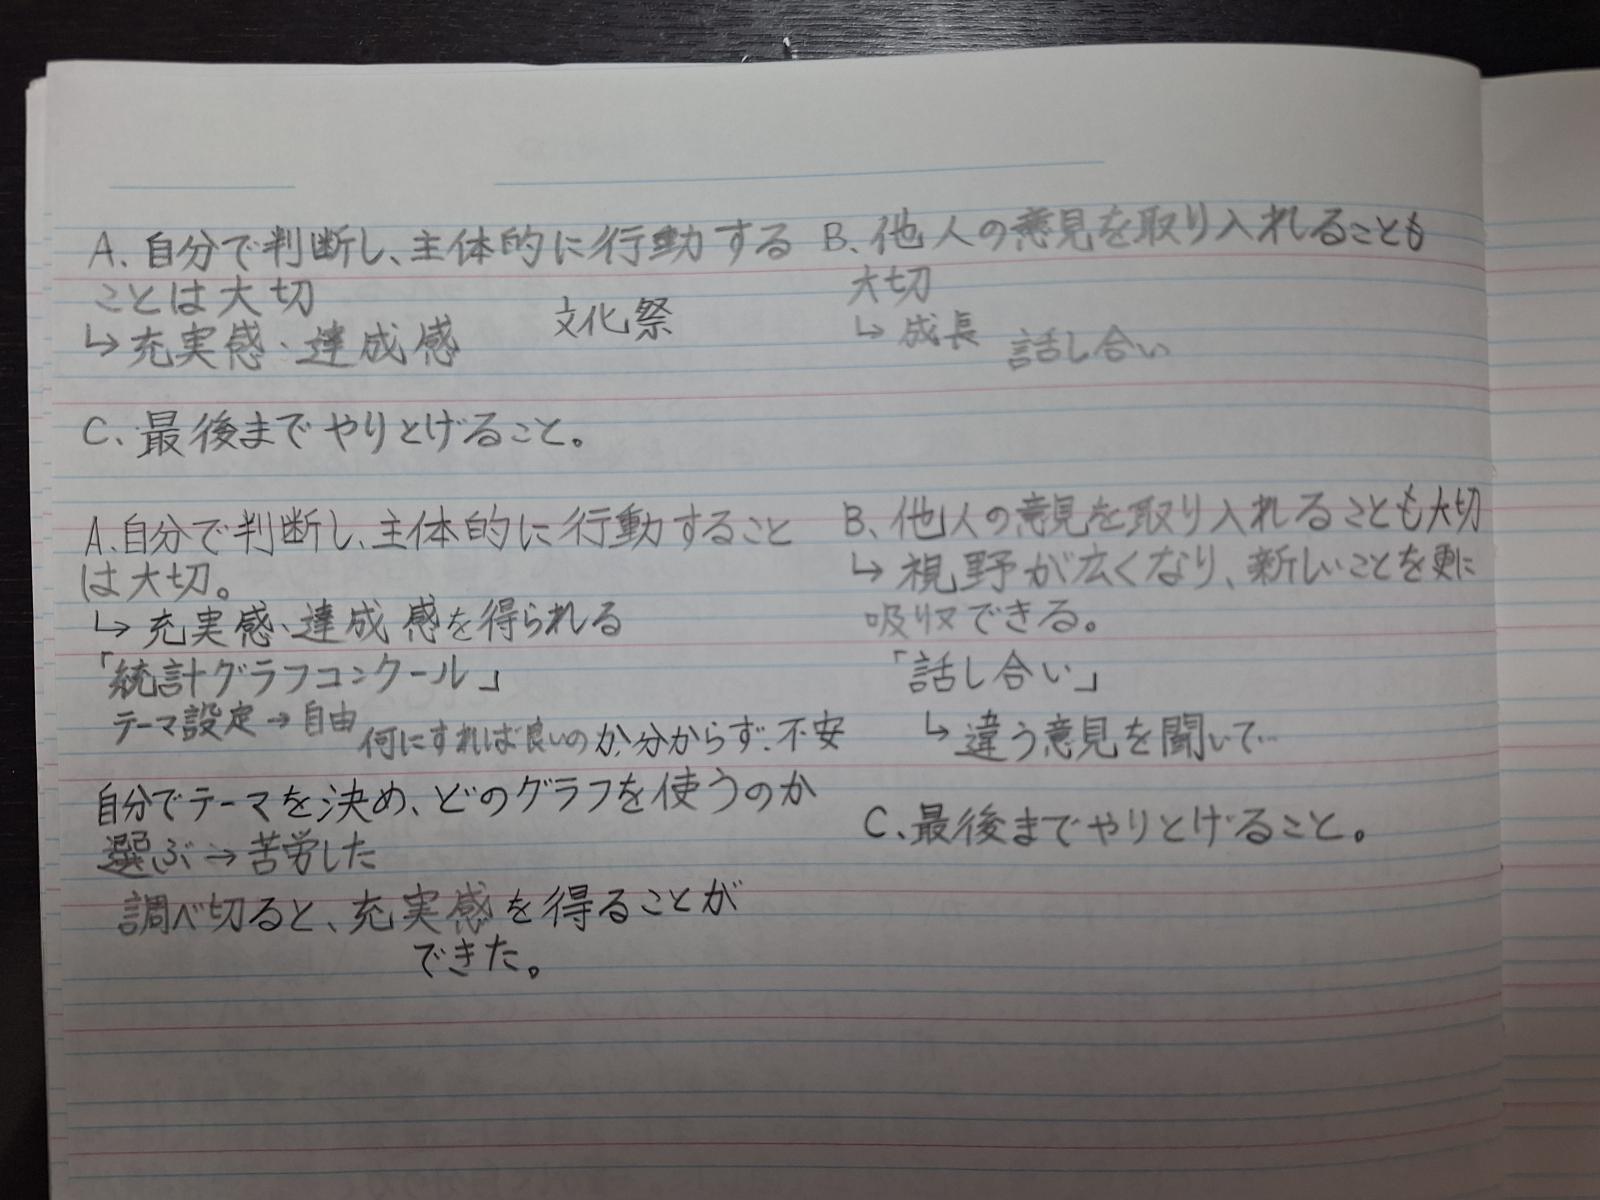 A、自分で判断し、主体的に行動する
ことは大切
↳充実感・達成感
文化祭
B、他人の意見を取り入れることも
大切
↳成長
話し合い
C、最後までやりとげること。
A、自分で判断し、主体的に行動すること
は大切。
↳充実感・達成感を得られる
「統計グラフコンクール」
テーマ設定→自由
何にすれば良いのか分からず、不安
自分でテーマを決め、どのグラフを使うのか
選ぶ→苦労した
調べ切ると、充実感を得ることが
できた。
B、他人の意見を取り入れることも大切
↳視野が広くなり、新しいことを更に
吸収できる。
「話し合い」
↳違う意見を聞いて…
C、最後までやりとげること。